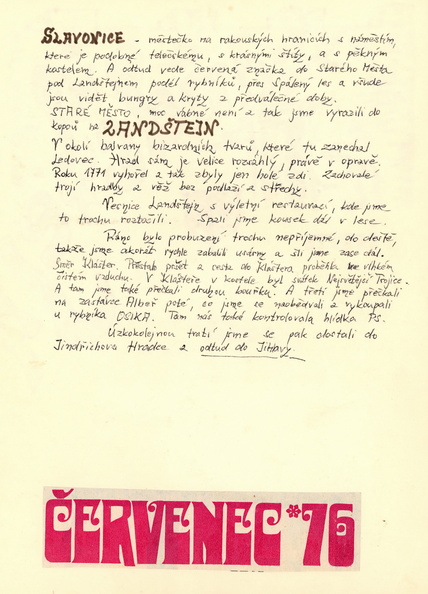 SLAVONICE - městečko na rakouských hranicích s náměstím,
které je podobné telečskému, s krásnými štíty, a s pěkným
kostelem. A odtud vede červená značka do Starého Města
pod Landštejnem podél rybníků, přes Spálený les a všude
jsou vidět bungry a kryty z předválečné doby.
STARÉ MĚSTO, moc vábné není a tak jsme vyrazili do
kopců na LANDŠTEJN.
V okolí balvany bizardních tvarů, které tu zanechal
ledovec. Hrad sám je velice rozsáhlý, právě v opravě.
Roku 1771 vyhořel a tak zbyly jen holé zdi. Zachovalé
trojí hradby a věž bez podlaží a střechy.
Vesnice Landštejn s výletní restaurací, kde jsme
to trochu roztočili. Spali jsme kousek dál v lese.
Ráno bylo probuzení trochu nepříjemné, do deště,
takže jsme akorát rychle zabalili usárny a šli jsme zase dál.
Směr Klášter. Přestal pršet a cesta do Kláštera proběhla ve vlhkém
čistém vzduchu. V Klášteře v kostele byl svátek Nejsvětější Trojice.
A tam jsme také přečkali druhou bouřku. A třetí jsme přečkali
na zastávce Albeř poté, co jsme se naobědvali a vykoupali
u rybníka OSIKA. Tam nás také kontrolovala hlídka PS.
Úzkokolejnou tratí jsme se pak dostali do
Jindřichova Hradce a odtud do Jihlavy.
ČERVENEC *76